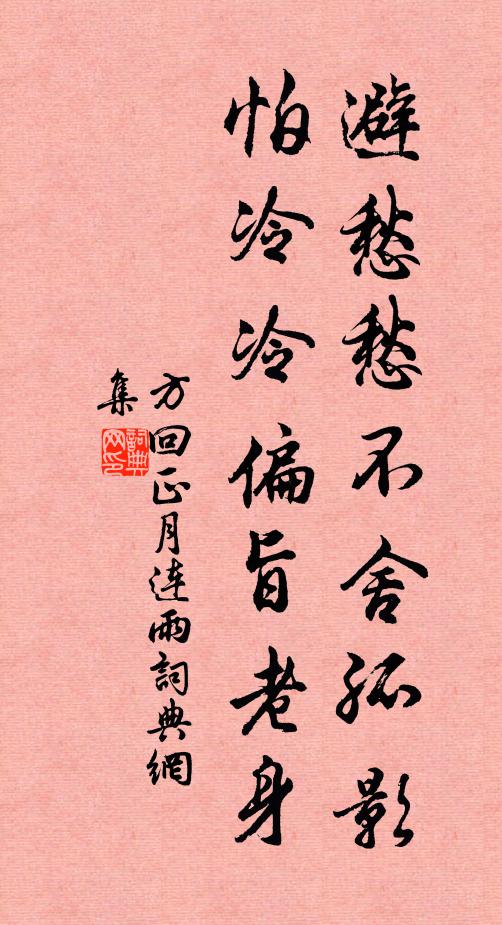 避愁愁不舍孤影
怕冷冷偏旨老身
方回正月连雨詞典網
集
詞典网印